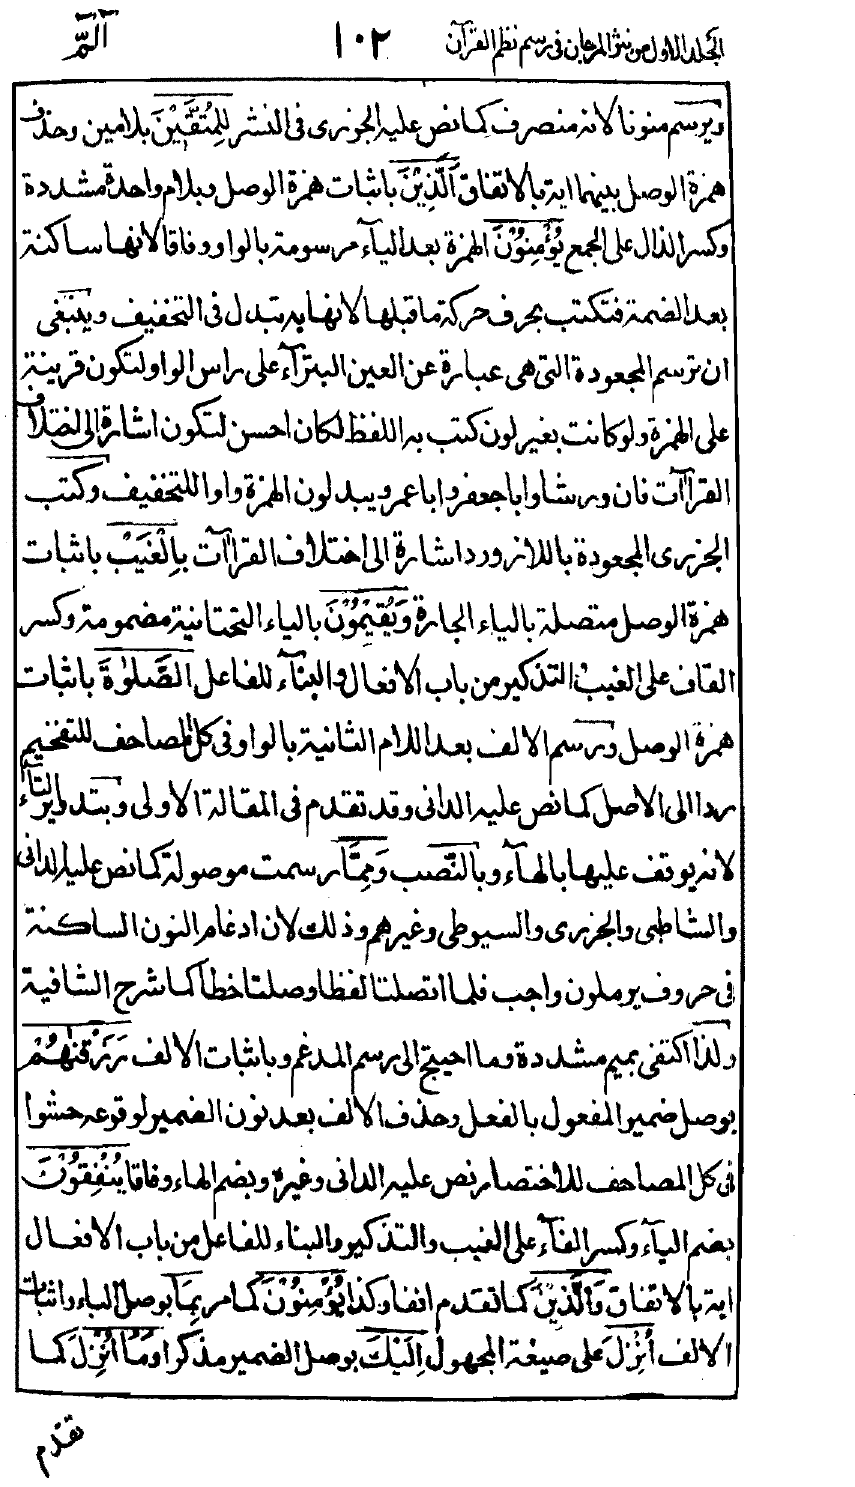 الجلد الاول من نثر المرجان في رسم نظم القرآن ١٠٢ الٓمّٓ
ويرسم منونا لانه منصرف كما نص عليه الجزرى فى النشر لِلْمُتَّقِيْنَ بلامين وحذف
همزة الوصل بينهما اية بالاتفاق اَلَّذِيْنَ باثبات همزة الوصل وبلام واحدة مشددة
وكسر الذال على الجمع يُؤْمِنُوْنَ الهمزة بعد اليآء مرسومة بالواو وفاقا لانها ساكنة
بعد الضمة فتكتب بحرف حركة ما قبلها لانها به تبدل فى التخفيف وينبغى
ان ترسم المجعودة التى هى عبارة عن العين البترآء على راس الواو لتكون قرينة
على الهمزة ولو كانت بغير لون كتب به اللفظ لكان احسن لتكون اشارة الى اختلاف
القراآت فان ورشا وابا جعفر وابا عمرو يبدلون الهمزة واوا للتخفيف وكتب
الجزرى المجعودة باللازورد اشارة الى اختلاف القراآت بِالْغَيْبِ باثبات
همزة الوصل متصلة بالباء الجارة وَيُقِيْمُوْنَ بالياء التحتانية مضمومة وكسر
القاف على الغيب والتذكير من باب الافعال والبنآء للفاعل الصَّلٰوةَ باثبات
همزة الوصل ورسم الالف بعد اللام الثانية بالواو فى كل المصاحف للتفخيم
ردا الى الاصل كما نص عليه الدانى وقد تقدم فى المقالة الاولى وبتدوير التآء
لانه يوقف عليها بالهآء وبالنصب وَمِمَّا رسمت موصولة كما نص عليه الدانى
والشاطبى والجزرى والسيوطى وغيرهم وذلك لان ادغام النون الساكنة
فى حروف يوملون واجب فلما اتصلتا لفظا وصلتا خطا كما شرح الشافية
ولذا اكتفى بميم مشددة وما احيتج الى رسم المدغم وباثبات الالف رَزَقْنٰهُمْ
بوصل ضمير المفعول بالفعل وحذف الالف بعد نون الضمير لوقوعه حشوا
فى كل المصاحف للاختصار نص عليه الدانى وغيره وبضم الهاء وفاقا يُنْفِقُوْنَ
بضم اليآء وكسر الفآء على الغيب والتذكير والبناء للفاعل من باب الافعال
اية بالاتفاق وَالَّذِيْنَ كما تقدم انفا وكذا يُؤْمِنُوْنَ كما مر بِمَا بوصل الباء واثبات
الالف أُنْزِلَ على صيغة المجهول اِلَيْكَ بوصل الضمير مذكرا وَمَا أُنْزِلَ كما
تقدم